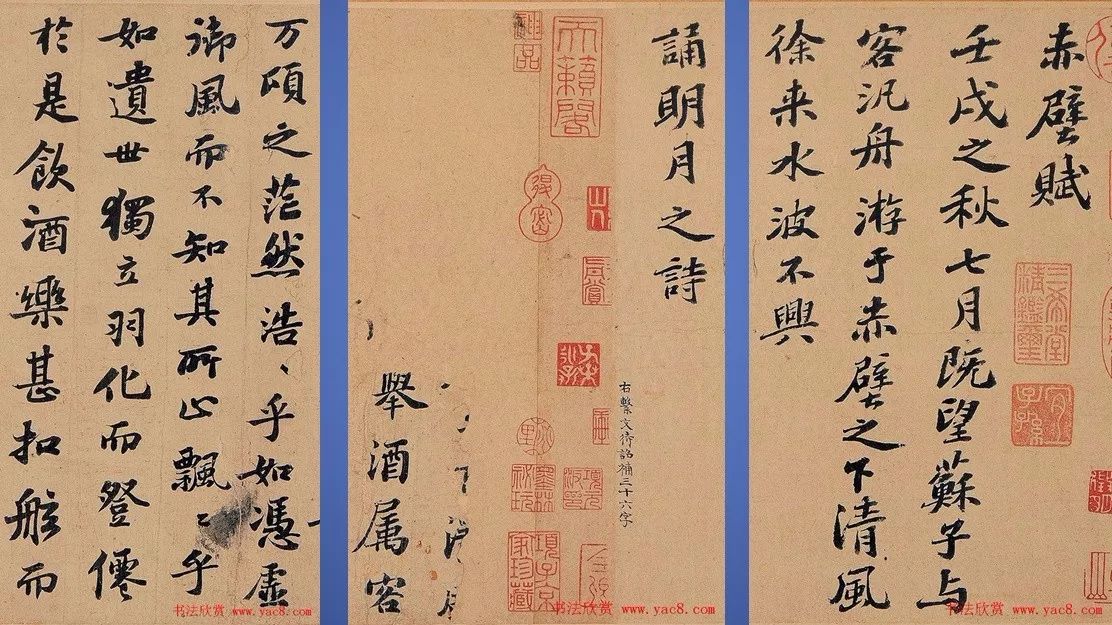 赤壁賦
壬戌之秋七月既望蘇子与
客汎舟游于赤壁之下清風
徐来水波不興
誦明月之詩
右繫文待詔補三十六字
天籟閣
神品
三希堂精鑑璽
宜子孫
項子京家珍藏
墨林秘玩
舉酒属客
万頃之茫然浩〻乎如馮虛
御風而不知其所止飄〻乎
如遺世獨立羽化而登僊
於是飲酒樂甚扣舷而
书法欣赏 www.yac8.com
书法欣赏 www.yac8.com
书法欣赏 www.yac8.com